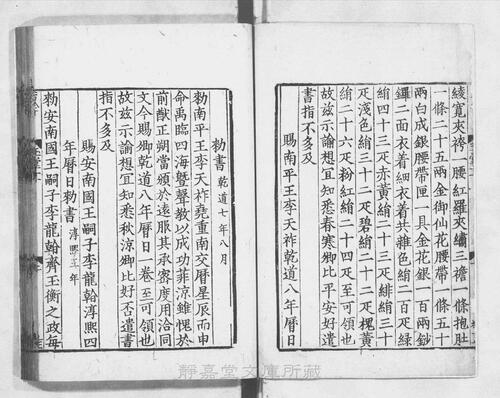 綾寬夾袴一腰紅羅夾繡三襜一條抱肚
一條二十五兩金御仙花腰帶一條五十
兩白成銀腰帶匣一具金花銀一百兩鈔
鑼二面衣着細衣着共雜色絹二百疋綠
絹四十三疋赤黃絹二十三疋緋絹三十
疋淺色絹三十二疋碧絹二十二疋槐黃
絹二十六疋粉紅絹二十四疋至可領也
故茲示諭想宜知悉春寒卿比平安好遣
書指不多及
賜南平王李天祚乾道八年曆日
勑書 乾道七年八月
勑南平王李天祚堯重南交曆星辰而申
命禹臨四海曁聲教以成功菲涼雖愧於
前猷正朔當頒於遠服其承密度用洽同
文今賜卿乾道八年曆日一卷至可領也
故茲示諭想宜知悉秋涼卿比好否遣書
指不多及
賜安南國王嗣子李龍𣉙淳熙四
年曆日勑書 淳熙三年
勑安南國王嗣子李龍𣉙齊玉衡之政每
靜嘉堂文庫所藏